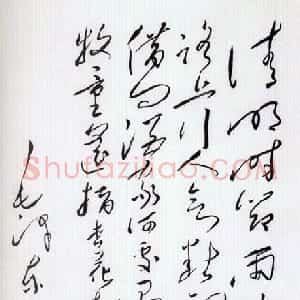 清明时节雨
路上行人欲断
借问酒家何处有
牧童遥指杏花
毛泽东
Shufazihao.com